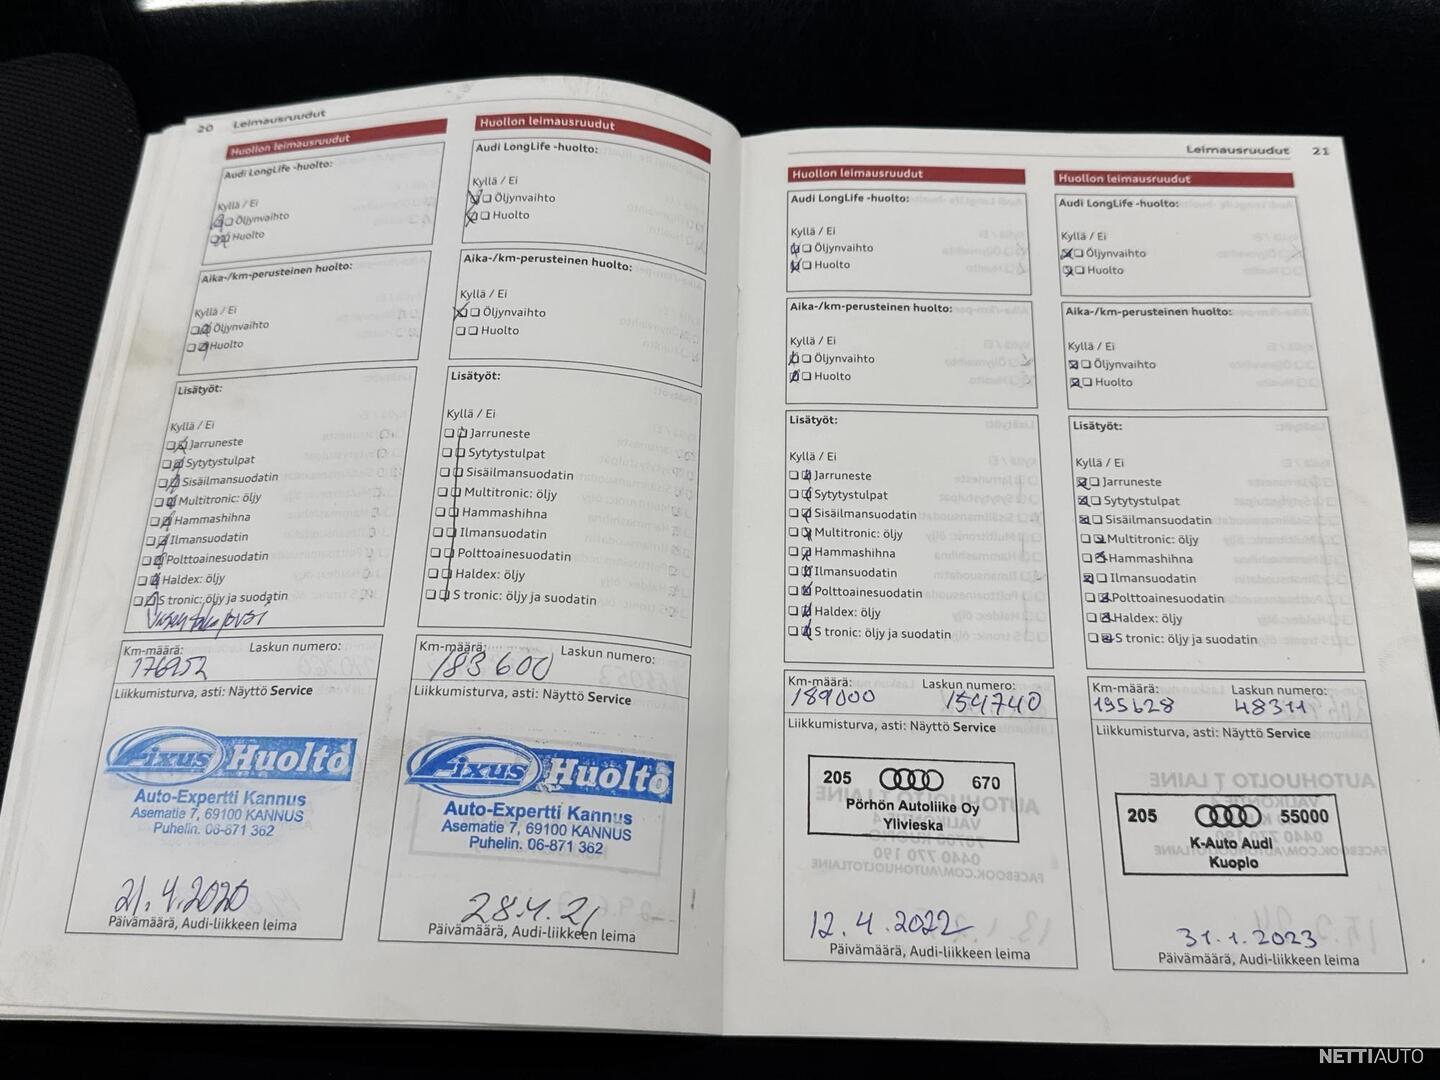 20 Leimausruudut
Huollon leimausruudut
Audi LongLife -huolto:
Kyllä / Ei
Öljynvaihto
Huolto
Aika-/km-perusteinen huolto:
Kyllä / Ei
Öljynvaihto
Huolto
Lisätyöt:
Kyllä / Ei
Jarruneste
Sytytystulpat
Sisäilmansuodatin
Multitronic: öljy
Hammashihna
Ilmansuodatin
Polttoainesuodatin
Haldex: öljy
S tronic: öljy ja suodatin
Km-määrä: Laskun numero:
176952
Liikkumisturva, asti: Näyttö Service
Fixus Huolto
Auto-Expertti Kannus
Asematie 7, 69100 KANNUS
Puhelin. 06-871 362
21.4.2020
Päivämäärä, Audi-liikkeen leima
Huollon leimausruudut
Audi LongLife -huolto:
Kyllä / Ei
Öljynvaihto
Huolto
Aika-/km-perusteinen huolto:
Kyllä / Ei
Öljynvaihto
Huolto
Lisätyöt:
Kyllä / Ei
Jarruneste
Sytytystulpat
Sisäilmansuodatin
Multitronic: öljy
Hammashihna
Ilmansuodatin
Polttoainesuodatin
Haldex: öljy
S tronic: öljy ja suodatin
Km-määrä: Laskun numero:
183 600
Liikkumisturva, asti: Näyttö Service
Fixus Huolto
Auto-Expertti Kannus
Asematie 7, 69100 KANNUS
Puhelin. 06-871 362
28.4.21
Päivämäärä, Audi-liikkeen leima
Leimausruudut 21
Huollon leimausruudut
Audi LongLife -huolto:
Kyllä / Ei
Öljynvaihto
Huolto
Aika-/km-perusteinen huolto:
Kyllä / Ei
Öljynvaihto
Huolto
Lisätyöt:
Kyllä / Ei
Jarruneste
Sytytystulpat
Sisäilmansuodatin
Multitronic: öljy
Hammashihna
Ilmansuodatin
Polttoainesuodatin
Haldex: öljy
S tronic: öljy ja suodatin
Km-määrä: Laskun numero:
189000 154740
Liikkumisturva, asti: Näyttö Service
205 670
Pörhön Autoliike Oy
Ylivieska
12.4.2022
Päivämäärä, Audi-liikkeen leima
Huollon leimausruudut
Audi LongLife -huolto:
Kyllä / Ei
Öljynvaihto
Huolto
Aika-/km-perusteinen huolto:
Kyllä / Ei
Öljynvaihto
Huolto
Lisätyöt:
Kyllä / Ei
Jarruneste
Sytytystulpat
Sisäilmansuodatin
Multitronic: öljy
Hammashihna
Ilmansuodatin
Polttoainesuodatin
Haldex: öljy
S tronic: öljy ja suodatin
Km-määrä: Laskun numero:
195628 48311
Liikkumisturva, asti: Näyttö Service
205 55000
K-Auto Audi
Kuopio
31.1.2023
Päivämäärä, Audi-liikkeen leima
NETTIAUTO